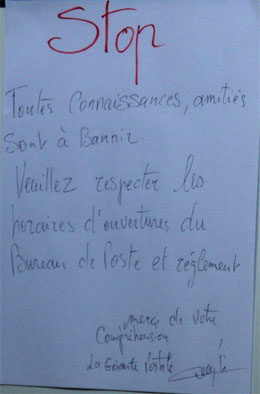 Stop
Toutes connaissances, amitiés
sont à Bannir.
Veuillez respecter les
horaires d'ouvertures du
Bureau de Poste et réglement
merci de votre
Compréhension
La Gérante Postale